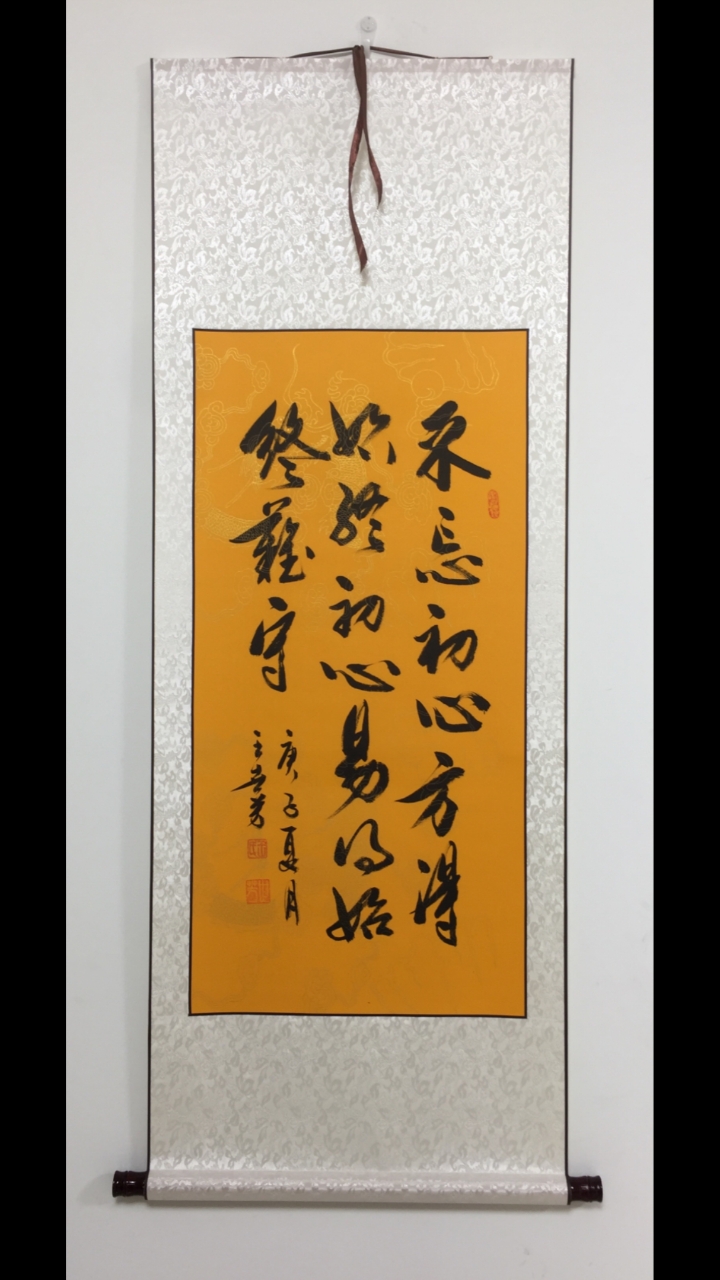 不忘初心方得
始終初心易得始
終難守
庚子夏月
王芳